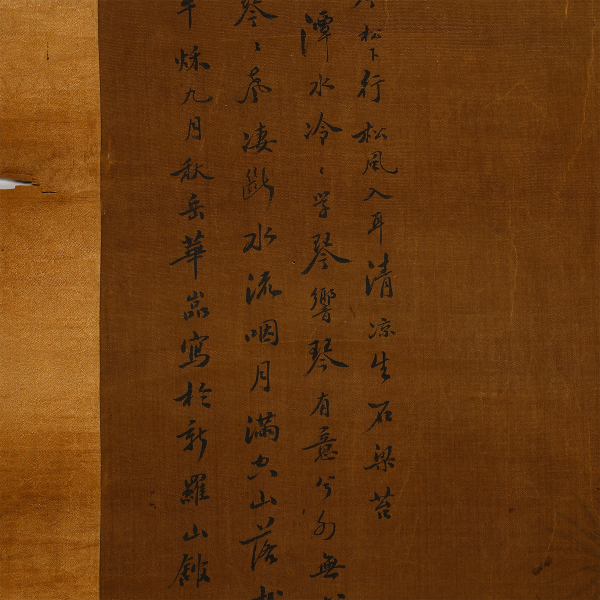 松下行松風入耳清凉生石梁苔
潭水冷〻学琴響琴有意兮外無
琴〻凄斷水流咽月滿空山落松
午秌九月秋岳華嵒寫於新羅山館